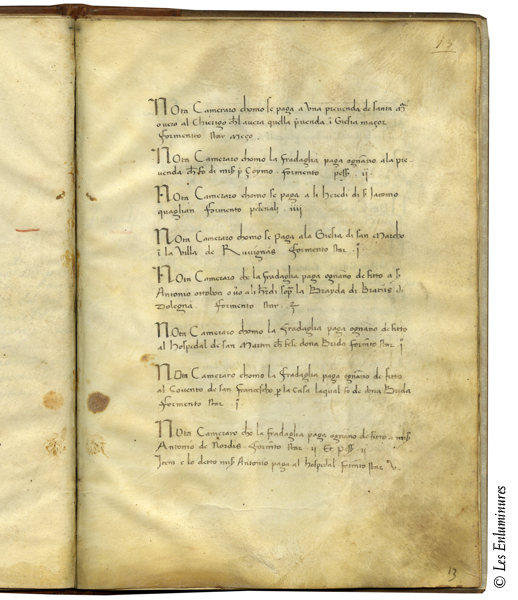 13
Nota Cameraro chomo se paga a una prevenda de santa
overo al Chierigo chel avera quella prevenda i Giesia maçor
formento star meço.
Nota Cameraro chomo la fradaglia paga ognano ala pre
venda formento pess. ij
Nota Cameraro chomo se paga a li heredi di s. Jacomo
quaglian formento pesenali iiij
Nota Cameraro chomo se paga ala Giesia di san Marcho
i la villa de Ruvignas formento star. j
Nota Camararo che la fradaglia paga ognano de fitto a s.
Antonio ottobon la Brayda di Brariis di
formento star
Nota Camararo chomo la fradaglia paga ognano de fitto
al Hospedal de san Martin dona Brida star j
Nota Camerraro chomo la fradaglia paga ognano de fitto
al Covento de san Francescho p la casa laqual fo de dona Brida
formento star j
Nota Camerarо che la fradaglia paga ognano de fitto a mis
Antonio de Nordis. star ij et pess ij
Item e lo detto mis Antonio paga al hospedal star
13
© Les Enluminures